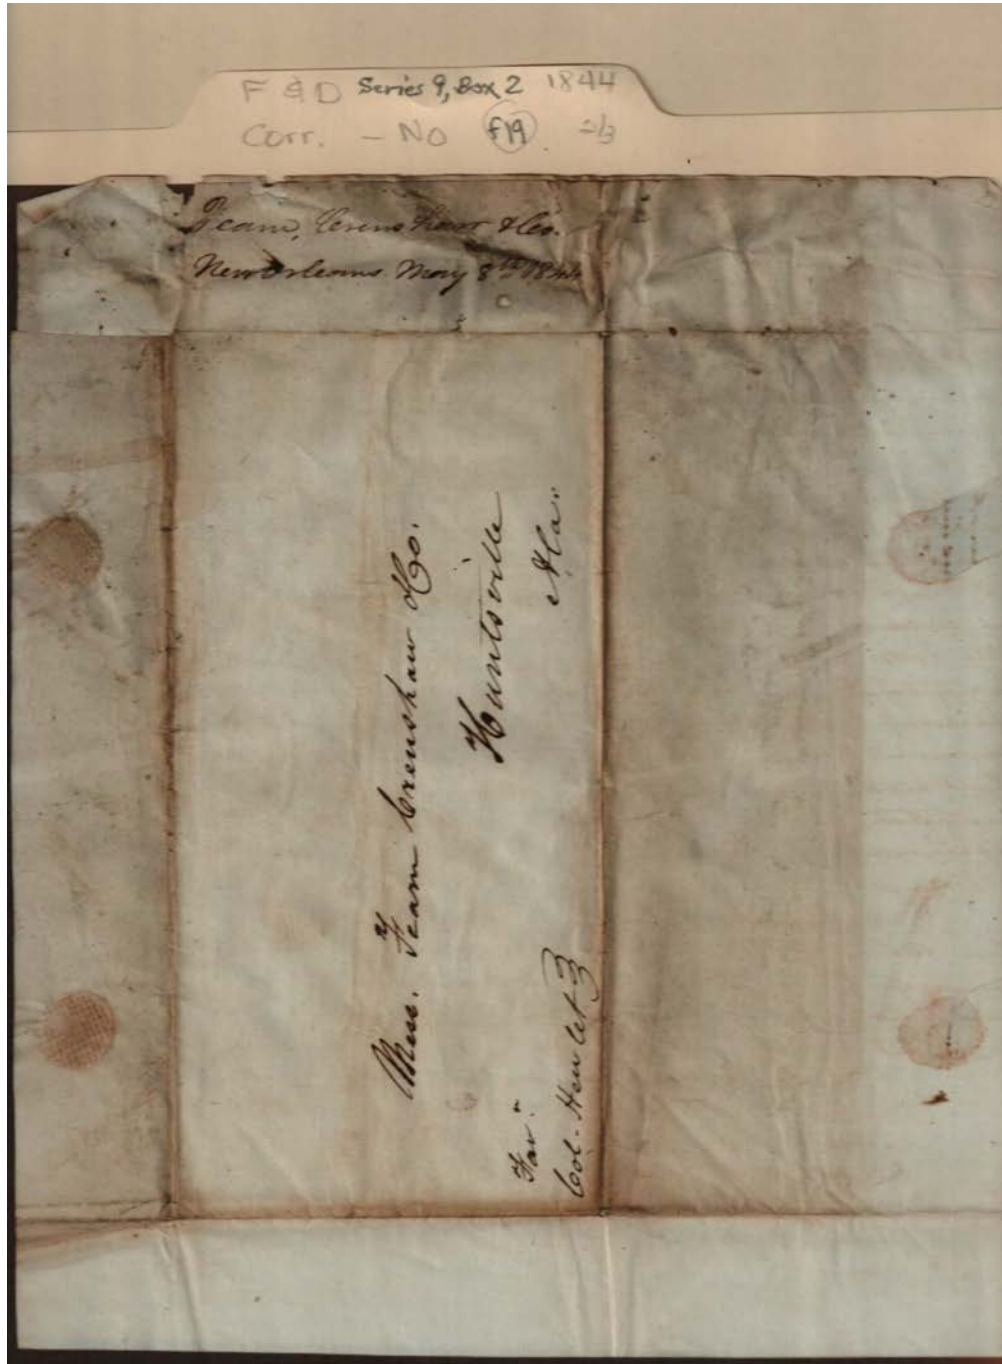 F & D Series 9, Box 2 1844
Corr. - No f19 2/3
Feam, Crenshaw & Co.
New Orleans May 8th 1844
Mess. Feam Crenshaw & Co.
Huntsville
Ala.
Fav.
Col. Hewlet